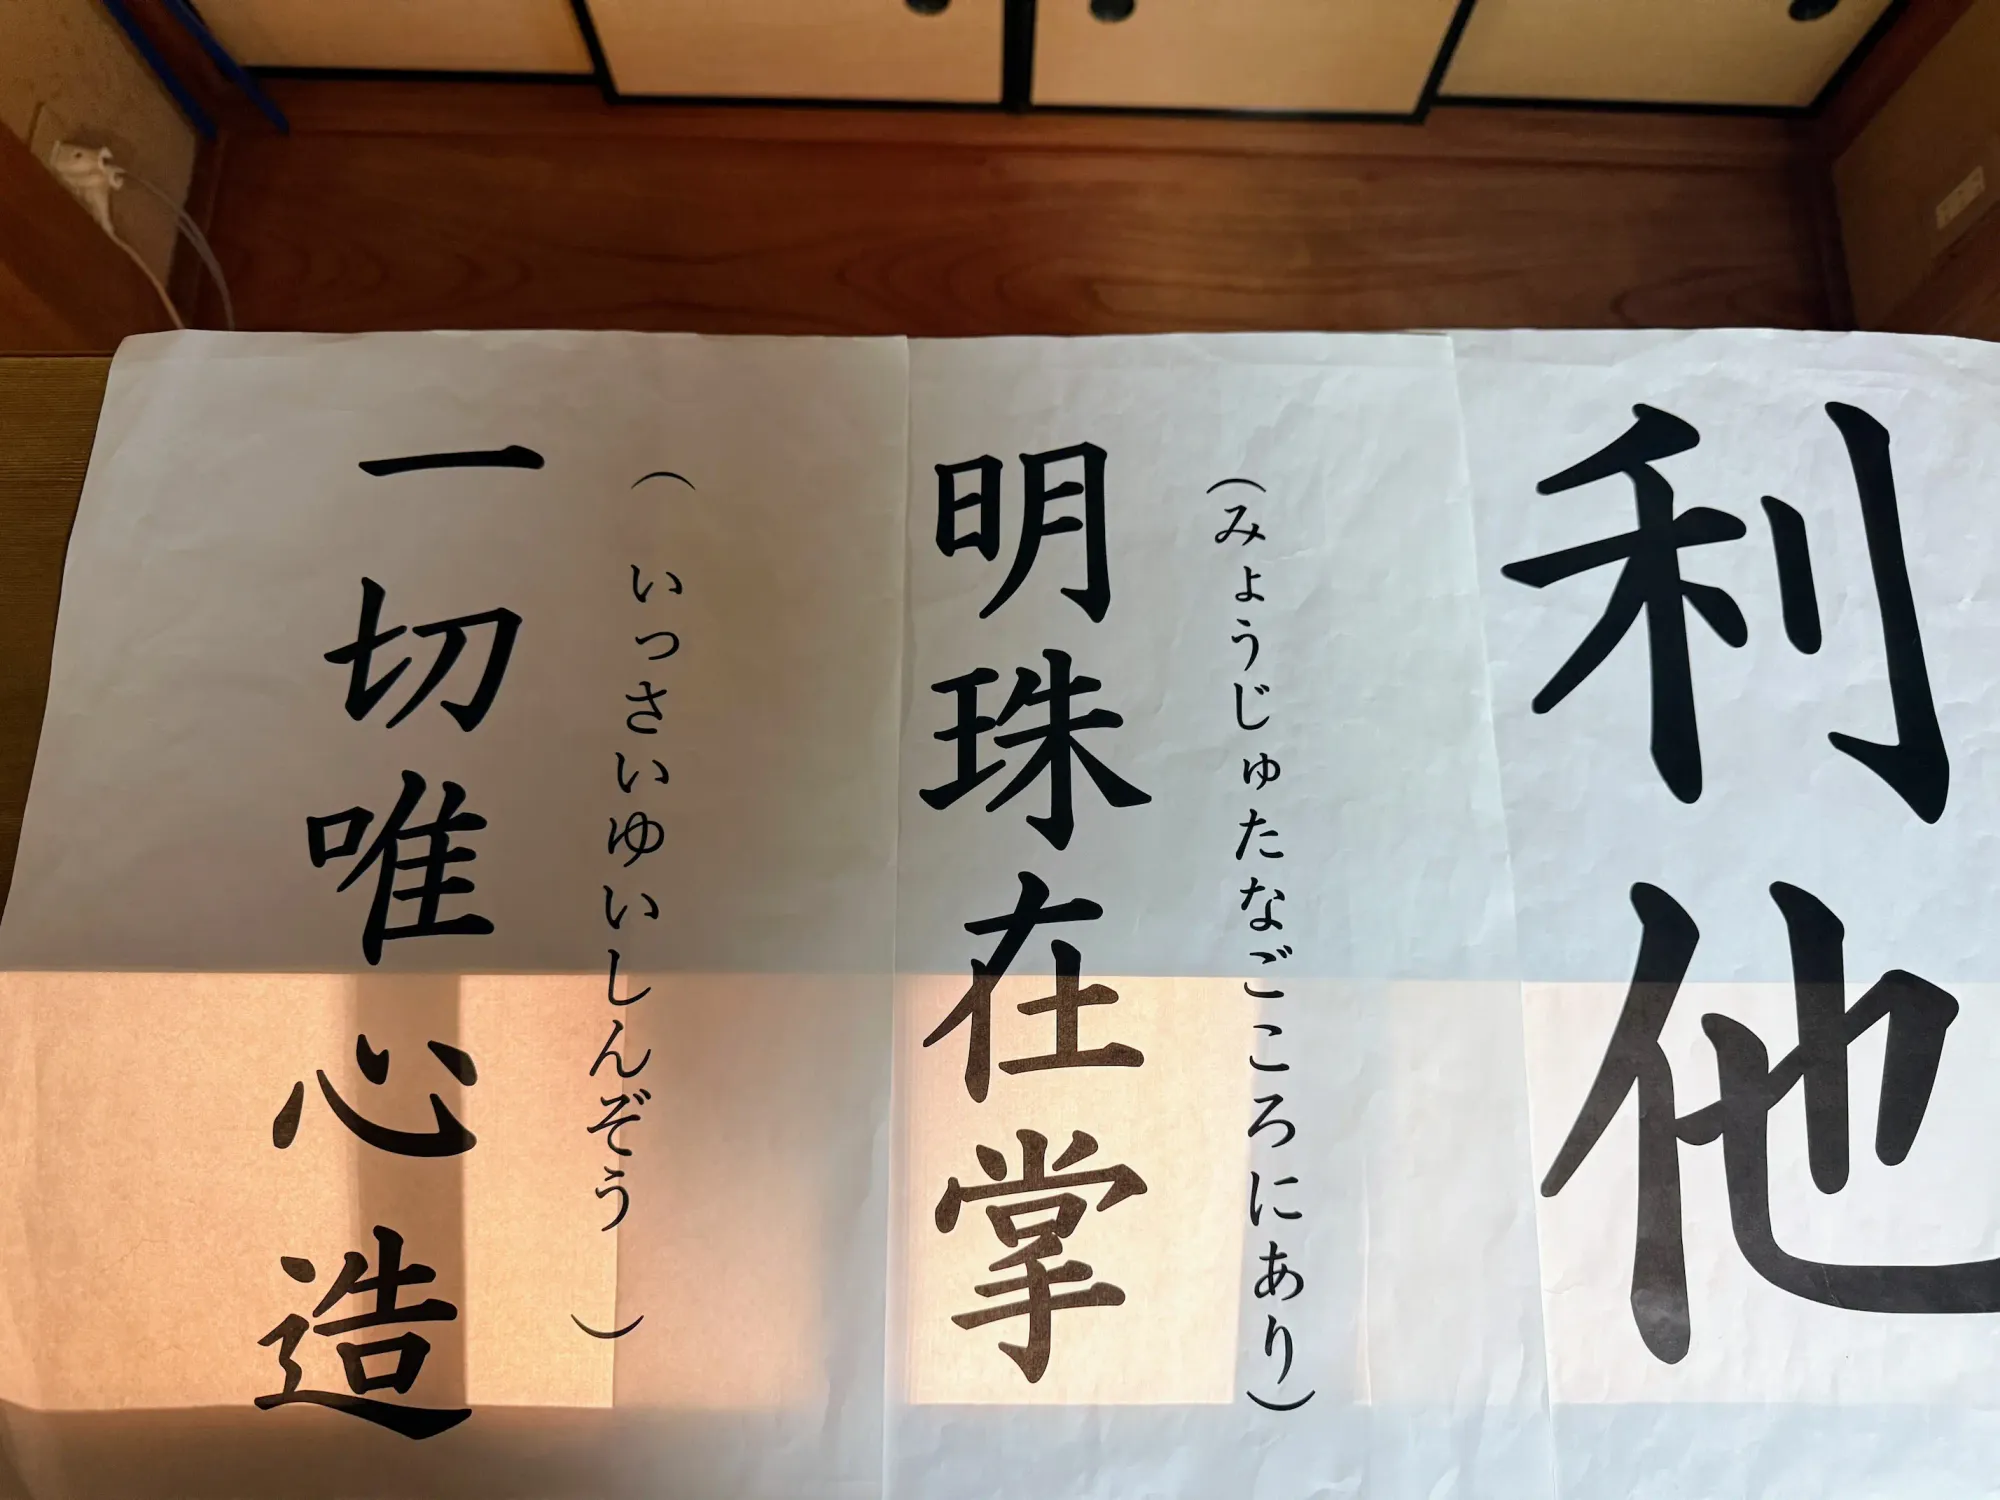 利他
明珠在掌
（みょうじゅたなごころにあり）
一切唯心造
（いっさいゆいしんぞう）